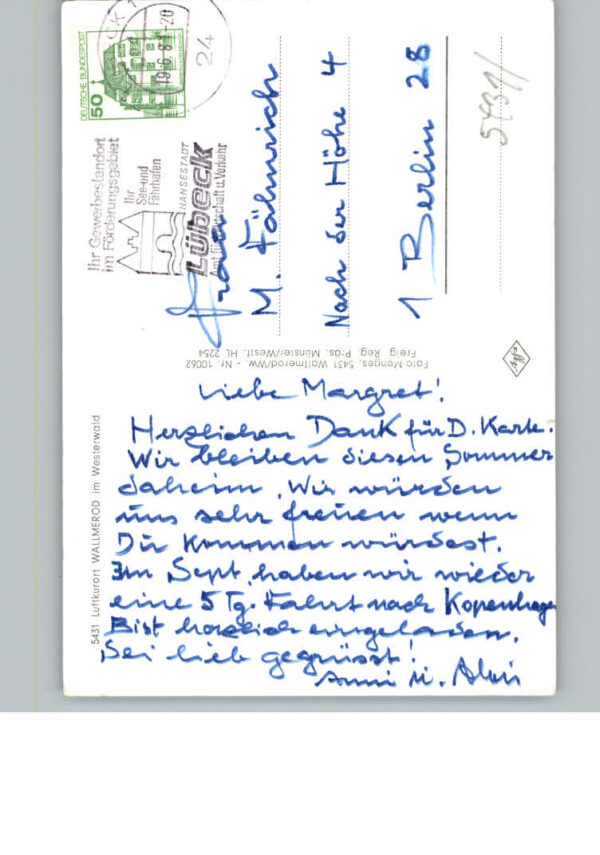 DEUTSCHE BUNDESPOST
50
19.6.8
-20
24
Ihr Gewerbestandort
im Förderungsgebiet
Ihr
See-und
Fährhafen
HANSESTADT
LÜBECK
Amt für Wirtschaft u. Verkehr
Frau
M. Fähnrich
Nach der Höhe 4
1 Berlin 28
5431/
Foto Menges, 5431 Wallmerod/Ww. - Nr. 10062
Freig. Reg. Präs. Münster/Westf. HL 2254
5431 Luftkurort WALLMEROD im Westerwald
Liebe Margret!
Herzlichen Dank für D. Karte.
Wir bleiben diesen Sommer
daheim. Wir würden
uns sehr freuen wenn
Du kommen würdest.
Im Sept. haben wir wieder
eine 5 Tg. Fahrt nach Kopenhagen
Bist herzlich eingeladen.
Sei lieb gegrüsst!
Anni u.